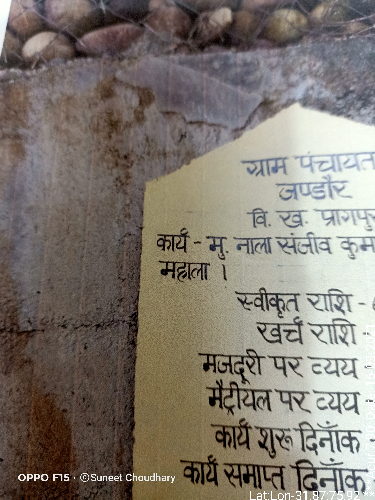 ग्राम पंचायत
जण्डौर
वि. ख. प्रागपुर
कार्य - मु. नाला संजीव कुम
महाला ।
स्वीकृत राशि -
खर्च राशि -
मजदूरी पर व्यय -
मैट्रीयल पर व्यय -
कार्य शुरू दिनाँक -
कार्य समाप्त दिनाँक
OPPO F15 · ©Suneet Choudhary
Lat:Lon-31.87,75.92